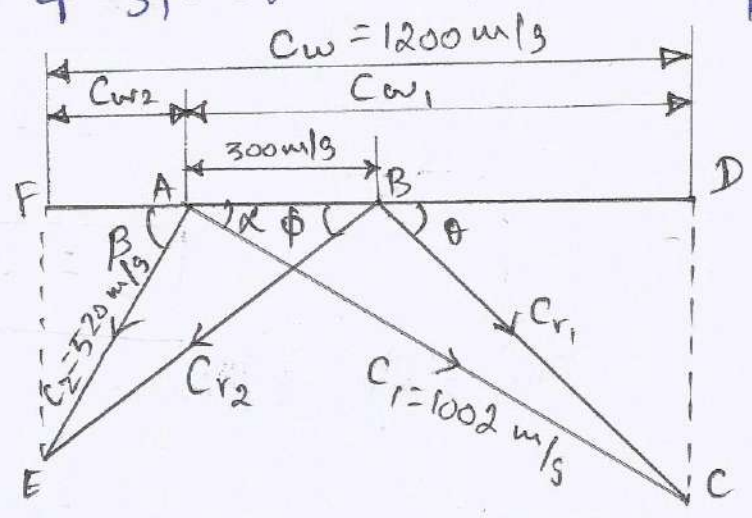 Cw = 1200 m/s
Cw2 Cw1
300 m/s
F A B D
β α φ θ
C2 = 520 m/s
Cr2
Cr1
C1 = 1002 m/s
E C